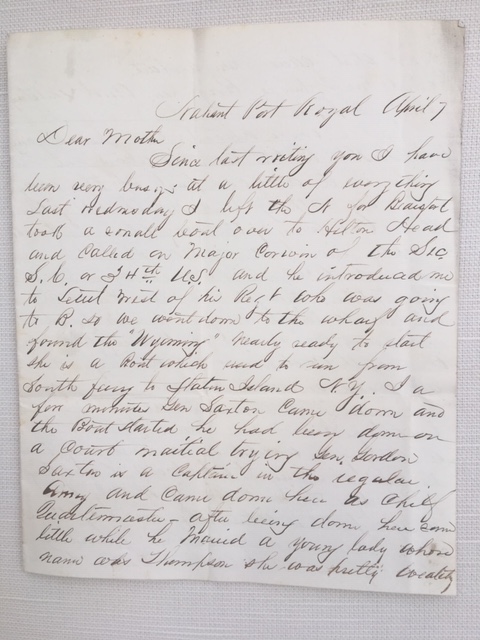 Nahant Port Royal April 7
Dear Mother
Since last writing you I have
been very busy at a little of everything
Last Wednesday I left the N for Beaufort
took a small boat over to Hilton Head
and called on Major Corwin of the Sec.
S.C. or 34th U.S. and he introduced me
to Lieut West of his Regt who was going
to B. so we went down to the wharf and
found the "Wyoming" nearly ready to start
she is a Boat which used to run from
South ferry to Staten Island N.Y. I a
few minutes Gen Saxton came down and
the Boat started he had been down on
a court martial trying Gen. Gordon
Saxton is a Captain in the regular
Army and came down here as Chief
Quartermaster - after being down here some
little while he married a young lady whose
name was Thompson she was pretty wealthy